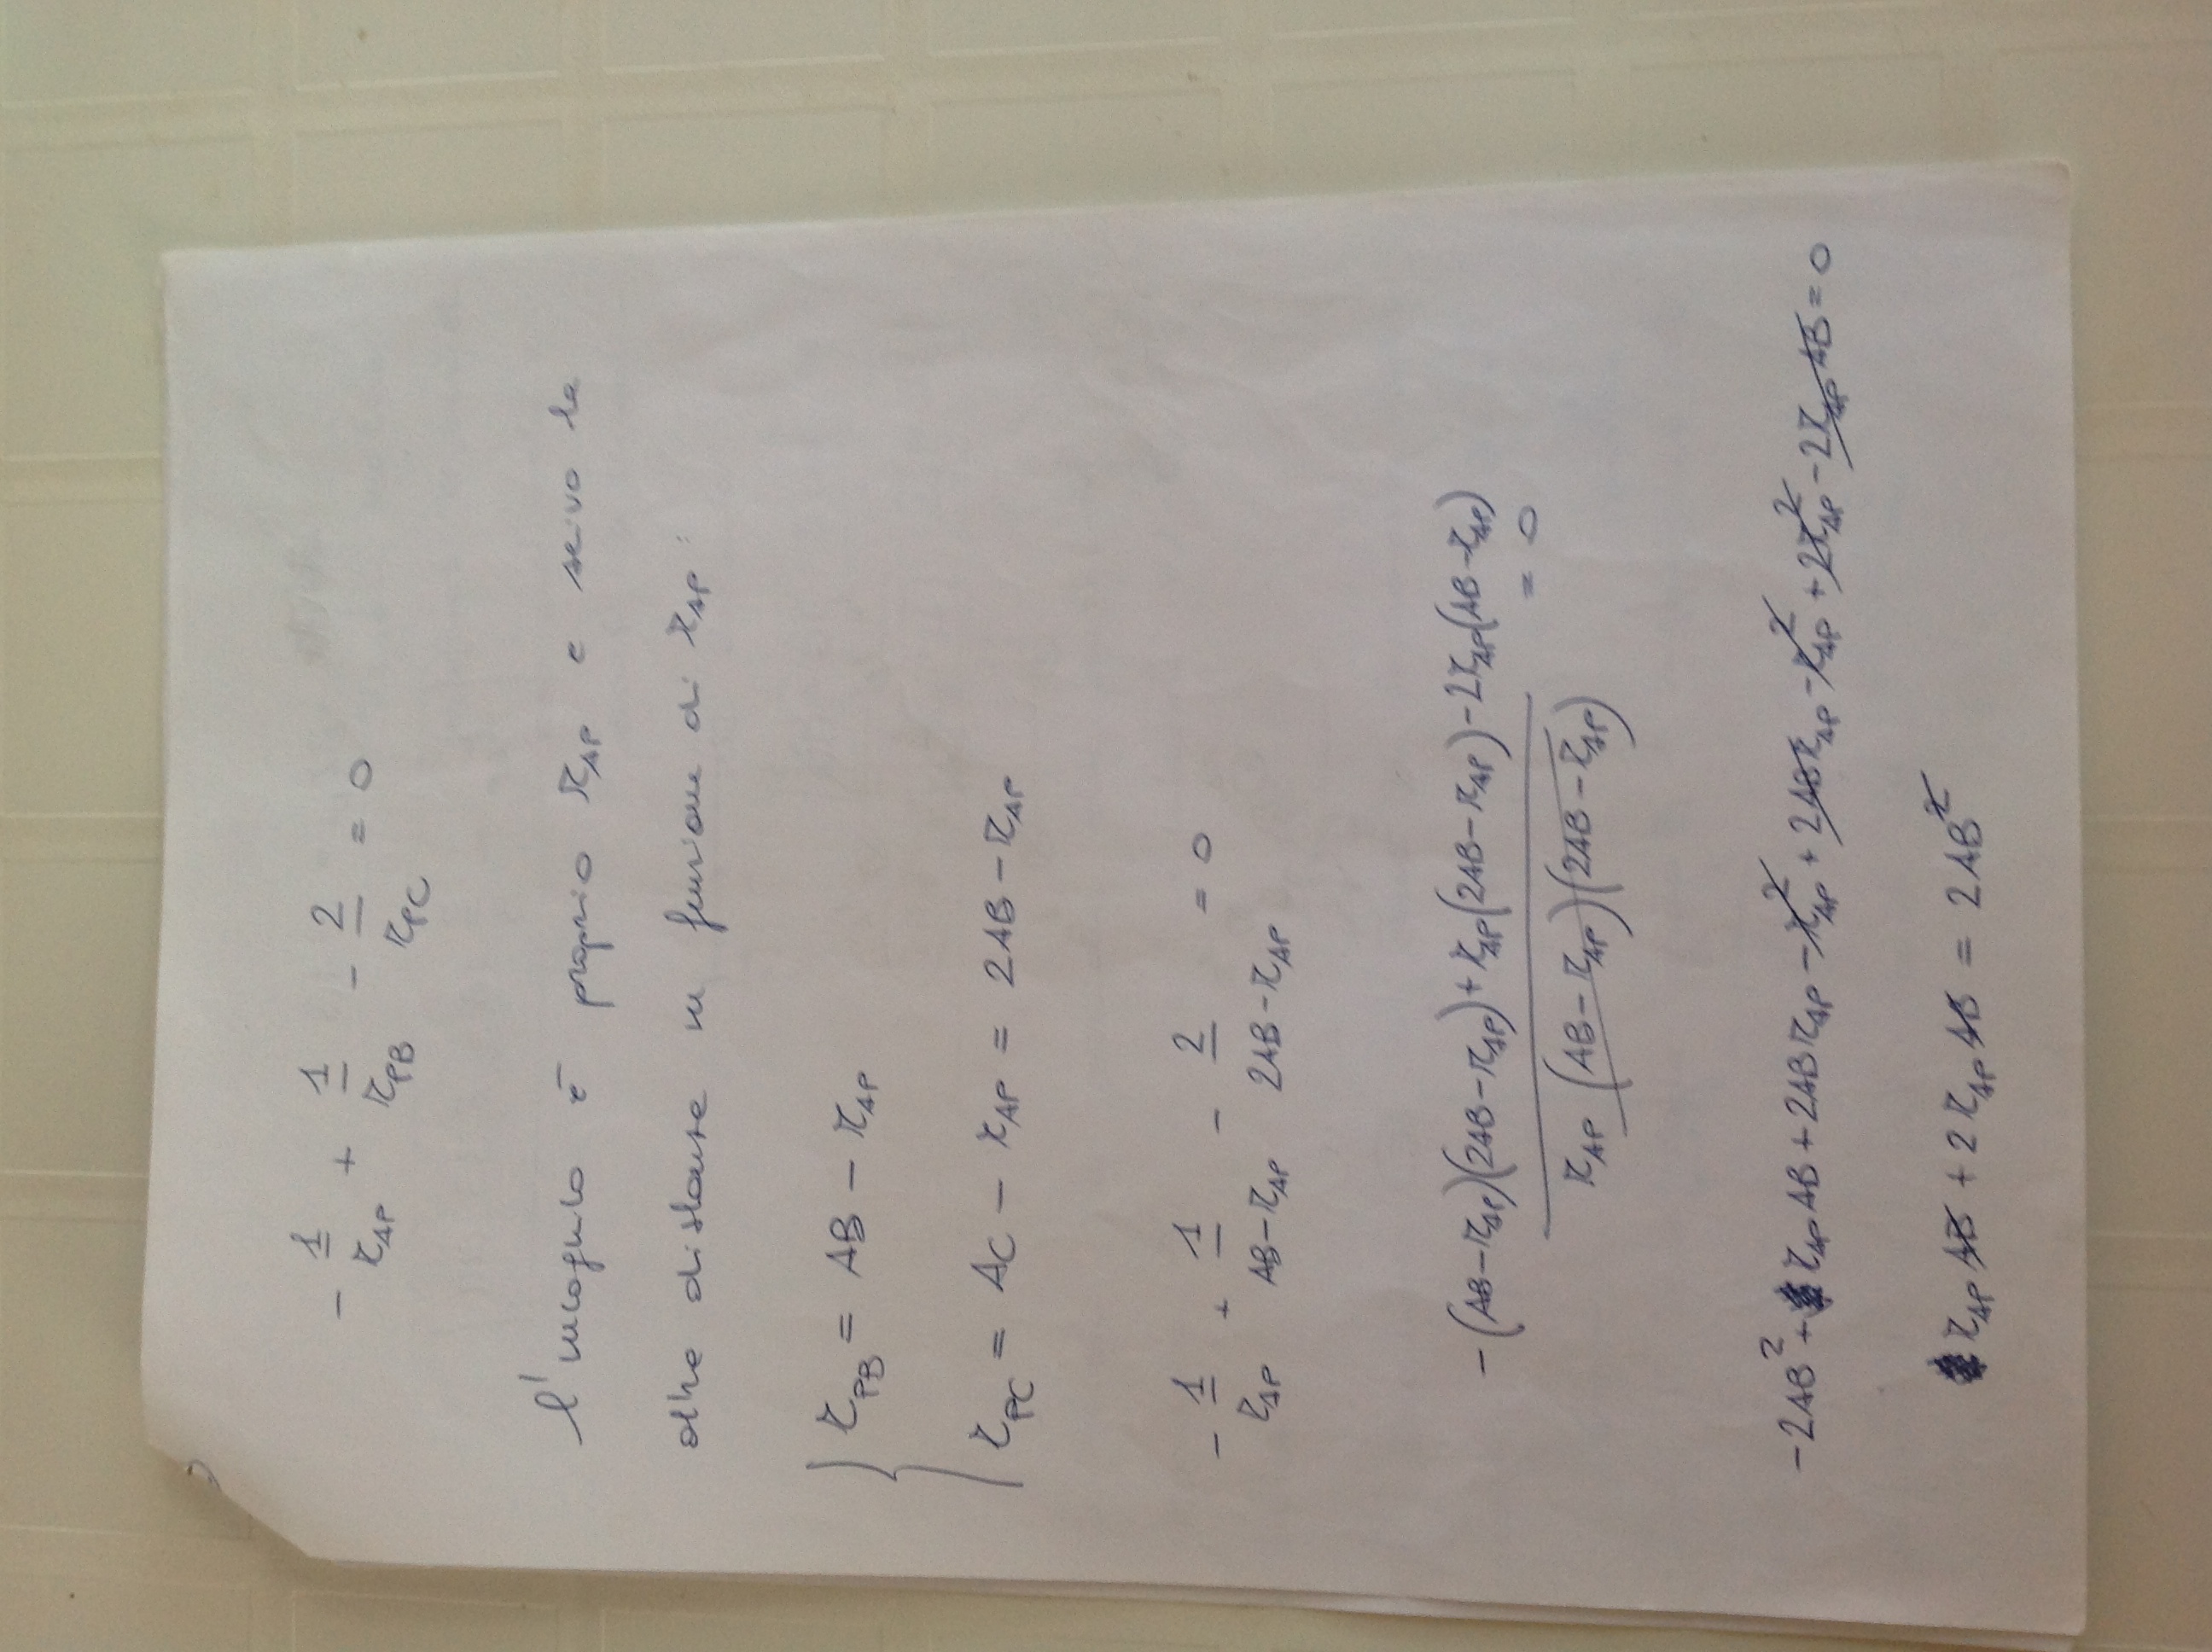 - 1/r_AP + 1/r_PB - 2/r_PC = 0
l'incognita è proprio r_AP e scrivo le
altre distanze in funzione di r_AP:
{ r_PB = AB - r_AP
r_PC = AC - r_AP = 2AB - r_AP
- 1/r_AP + 1/(AB - r_AP) - 2/(2AB - r_AP) = 0
(-(AB - r_AP)(2AB - r_AP) + r_AP(2AB - r_AP) - 2r_AP(AB - r_AP)) / (r_AP (AB - r_AP)(2AB - r_AP)) = 0
-2AB² + r_AP AB + 2AB r_AP - r_AP² + 2AB r_AP - r_AP² + 2r_AP² - 2r_AP AB = 0
r_AP AB + 2 r_AP AB = 2AB²